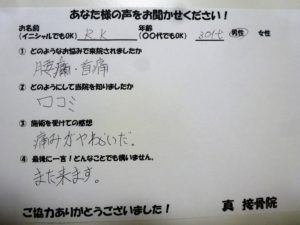 あなた様の声をお聞かせください！
お名前 年齢
(イニシャルでもOK) R.K (〇〇代でもOK) 30代 男性 女性
① どのようなお悩みで来院されましたか
腰痛・首痛
② どのようにして当院を知りましたか
口コミ
③ 施術を受けての感想
痛みがやわらいだ。
④ 最後に一言！どんなことでも構いません。
また来ます。
ご協力ありがとうございました！ 真 接骨院